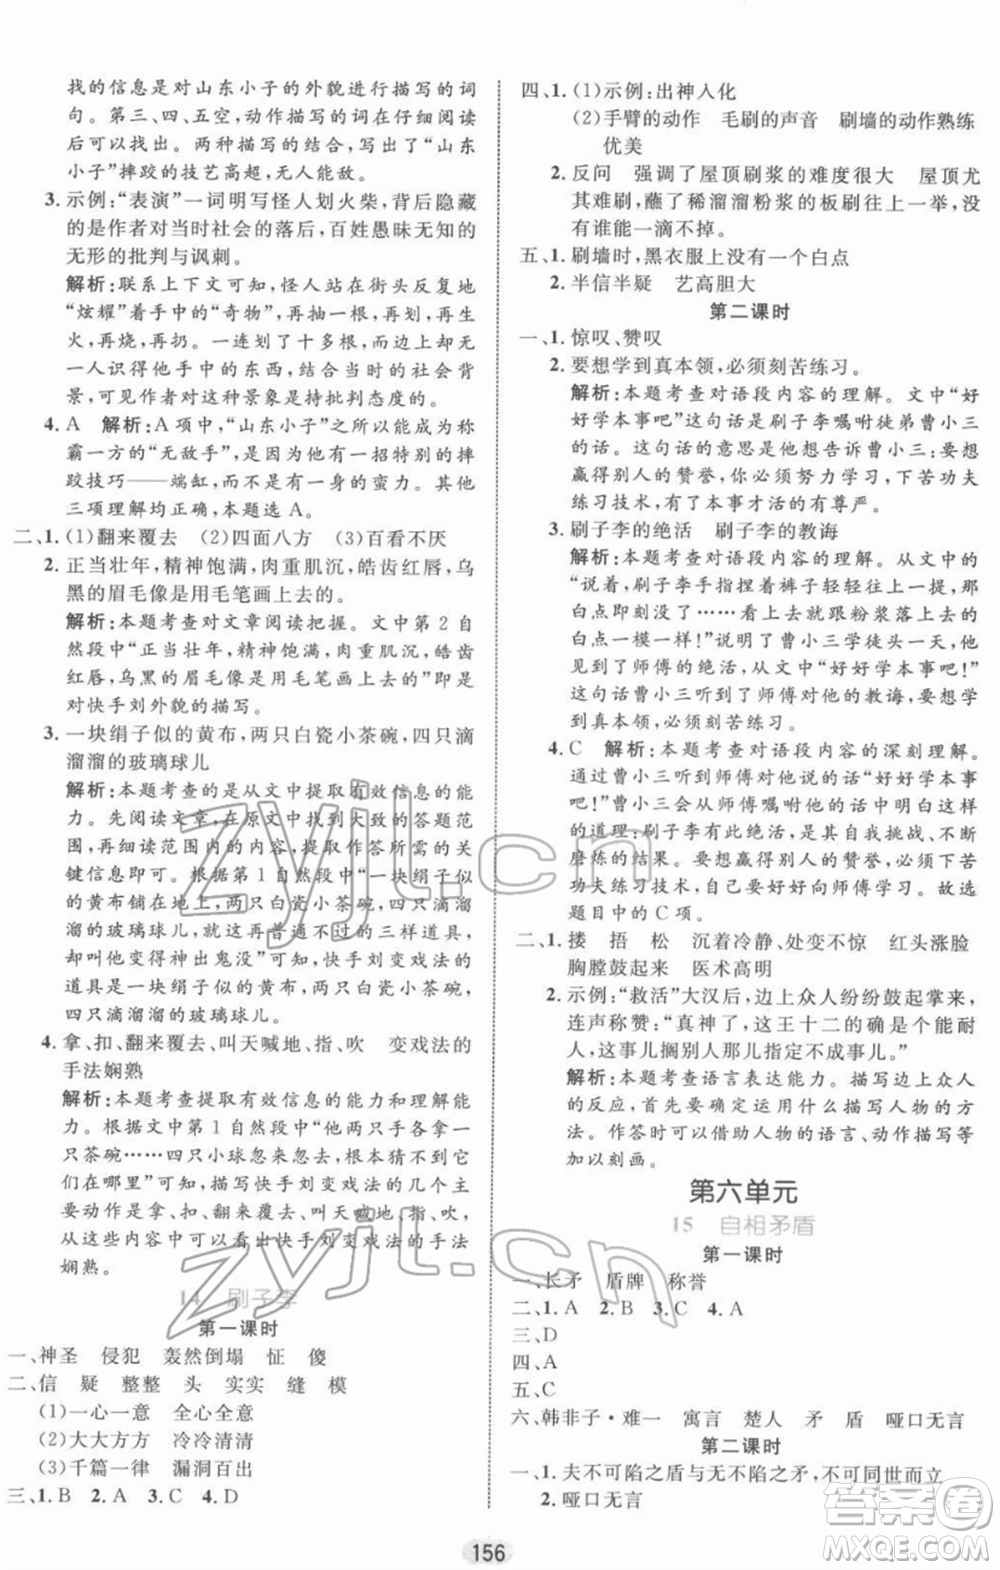 找的信息是对山东小子的外貌进行描写的词
句。第三、四、五空,动作描写的词在仔细阅读
后可以找出。两种描写的综合,突出了“山东
小子”摔跤的技艺高超,无人能敌。
3. 示例:“表演”一词明写怪人划火柴,背后隐藏
的是作者对当时社会的落后,百姓愚昧无知的
无形的批判与讽刺。
解析:联系上下文可知,怪人站在人圈里不断地
“炫耀”着手中的“奇物”,再抽出,再划,再生
火,再烧,再扔。一连划了十多根,竟然没有一
人识得他手中的东西,结合当时的社会背
景,可见作者对这种景象是持批判态度的。
4. A 解析:A项中,“山东小子”之所以能成为称
霸一方的“无敌手”,是因为他有一种神奇的摔
跤技巧——端缸,而不是有一身的蛮力。其他
三项理解均正确,本题选A。
二、1. (1)翻来覆去 (2)四面八方 (3)百看不厌
2. 正当壮年,精神饱满,肉重肌沉,皓齿红唇,乌
黑的眉毛像是用毛笔画上去的。
解析:本题考查对文章阅读把握。文中第2自
然段中“正当壮年,精神饱满,肉重肌沉,皓齿
红唇,乌黑的眉毛像是用毛笔画上去的”,这是
对快手刘外貌的描写。
3. 一块绢子似的黄布,两只白瓷小茶碗,四只滴
溜溜的玻璃球儿
解析:本题考查的是从文中提取有效信息的能
力。先阅读文章,在原文中找到大致的答题范
围,再细读这一范围内的内容,提取作答所需的关
键信息即可。根据第1自然段中“一块绢子似
的黄布铺在地上,两只白瓷小茶碗,四个滴溜
溜的玻璃球儿,大小跟红果差不多,摆在这布
上,像大变得神出鬼没”可知快手刘变戏法的
道具是一块绢子似的黄布,两只白瓷小茶碗,
四只滴溜溜的玻璃球儿。
4. 拿、扣、翻来覆去、叫天喊地、指、吹 变戏法的
手法娴熟
解析:本题考查提取有效信息的能力和理解能
力。根据文中第1自然段中“他两只手各拿一
只茶碗……四个小球居然都在里面”可知,
这是动作描写,描写快手刘变戏法的过程,主
要动作是拿、扣、翻来覆去、叫天喊地、指、吹。
这些动作描写突出了快手刘变戏法的手法
娴熟。
14 刷子李
第一课时
一、神圣 侵犯 轰然倒塌 怔 傻
二、信 疑 整整 头 实实 缝 模
(1)一心一意 全心全意
(2)大大方方 冷冷清清
(3)千篇一律 漏洞百出
三、1. B 2. A 3. C 4. D
四、1. (1)示例:出神入化
(2)手臂的动作 毛刷的声音 刷墙的动作熟练
优美
2. 反问 强调了屋顶刷浆的难度很大 屋顶尤
其难刷,蘸了稀溜溜粉浆的板刷往上一举,
没有谁能一滴不掉。
五、1. 刷墙时,黑衣服上没有一个白点
2. 半信半疑 艺高胆大
第二课时
一、1. 惊叹、赞叹
2. 要想学到真本领,必须刻苦练习。
解析:本题考查对语段内容的理解。文中“好
好学本事吧”这句话是刷子李嘱咐徒弟曹小三
的话。这句话的意思是他想告诉曹小三:要想
赢得别人的赞誉,你必须努力学习,下苦功夫
练习技术,掌握技巧,有了本事才活得精彩。
3. 刷子李的绝活 刷子李的教诲
解析:本题考查对语段内容的理解。从文中的
“说着,刷子李手指捏着裤子轻轻往上一提,那
白点即刻没了……一松手,白点又出现,
白点一模一样!”说明了曹小三学徒头一天,他
见到了师傅的绝活,从文中“好好学本事吧!”
这句话曹小三听到了师傅对他的教诲,要想学
到真本领,必须刻苦练习。
4. C 解析:本题考查对语段内容的深刻理解。
通过曹小三听到师傅对他说的话“好好学本事
吧!”曹小三听到的更是师傅对他的话中蕴含
的道理:刷子李有此绝活,是其自我挑战、不断
磨炼的结果。要想赢得别人的赞誉,必须下苦
功夫努力学习技术,而且要虚心向师傅学。故选
题目中的C项。
二、1. 搂 捂 松 沉着冷静、处变不惊 红头涨脸
胸膛鼓起来 医术高明
2. 示例:“救活”大汉后,边上众人纷纷鼓起掌来,
连声称赞:“真神了,这王十二的确是个能耐
人,这事儿搁别人那儿指定不成事儿。”
解析:本题考查语言表达能力。描写边上众人
的反应,首先要选择适当的描写人物的方
法。作答时可以借助人物的语言、动作、神态等
加以刻画。
第六单元
15 自相矛盾
第一课时
一、长矛 盾牌 称誉
二、1. A 2. B 3. C 4. A
三、D
四、A
五、C
六、韩非子·难一 寓言 楚人 矛 盾 哑口无言
第二课时
一、1. 夫不可陷之盾与无不陷之矛,不可同世而立
2. 哑口无言
156
zyjl.cn
zyjl.cn
答案圈
MXQE.COM